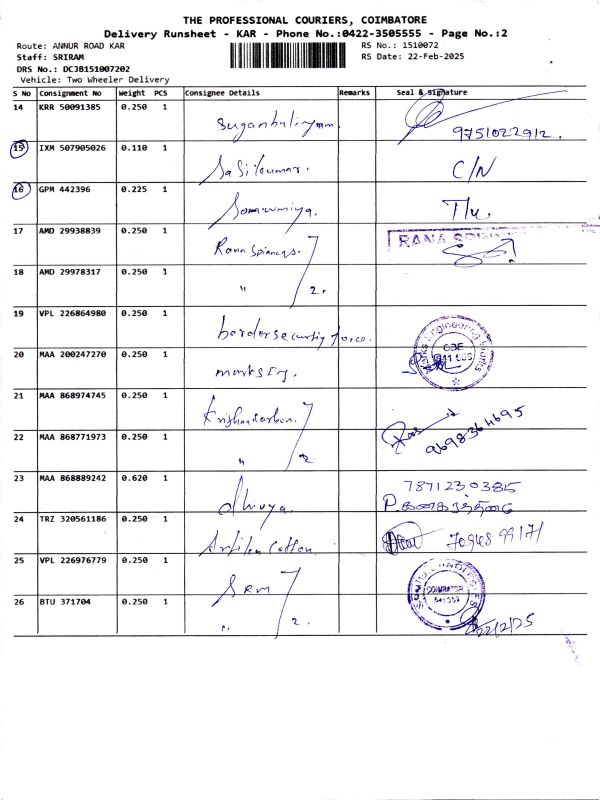 THE PROFESSIONAL COURIERS, COIMBATORE
Delivery Runsheet - KAR - Phone No.:0422-3505555 - Page No.:2
Route: ANNUR ROAD KAR RS No.: 1510072
Staff: SRIRAM RS Date: 22-Feb-2025
DRS No.: DCJB151007202
Vehicle: Two Wheeler Delivery
S No Consignment No Weight PCS Consignee Details Remarks Seal & Signature
14 KRR 50091385 0.250 1
9751022912.
15 IXM 507905026 0.110 1 Sasikumar. C/N
16 GPM 442396 0.225 1
17 AMD 29938839 0.250 1 Rana Spinners. RANA
18 AMD 29978317 0.250 1 " 2.
19 VPL 226864980 0.250 1 bordersecurity force.
20 MAA 200247270 0.250 1
21 MAA 868974745 0.250 1 Krishna carbon.
22 MAA 868771973 0.250 1 " 2. 9698364695
23 MAA 868889242 0.620 1 dhivya. 7871230385
24 TRZ 320561186 0.250 1
25 VPL 226976779 0.250 1 COIMBATORE
26 BTU 371704 0.250 1 " 2. 22/2/25